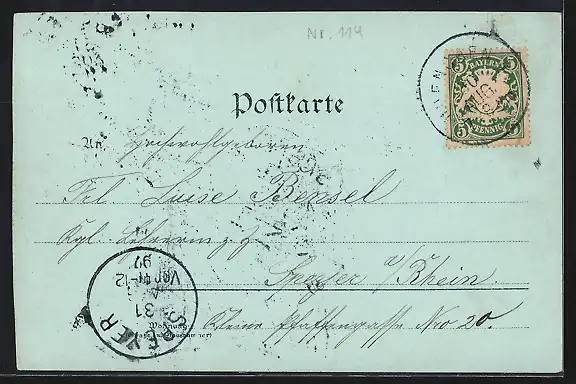 Nr. 114
BAYERN
5 5
5 PFENNIG 5
Postkarte
An Hochwohlgeboren
Frl. Luise Bensel
Kgl. Lehrerin z. Z.
Speyer a/Rhein.
Wohnung
Kleine Pfaffengasse Nro 20.
SPEYER
31
Vor 11-12
97